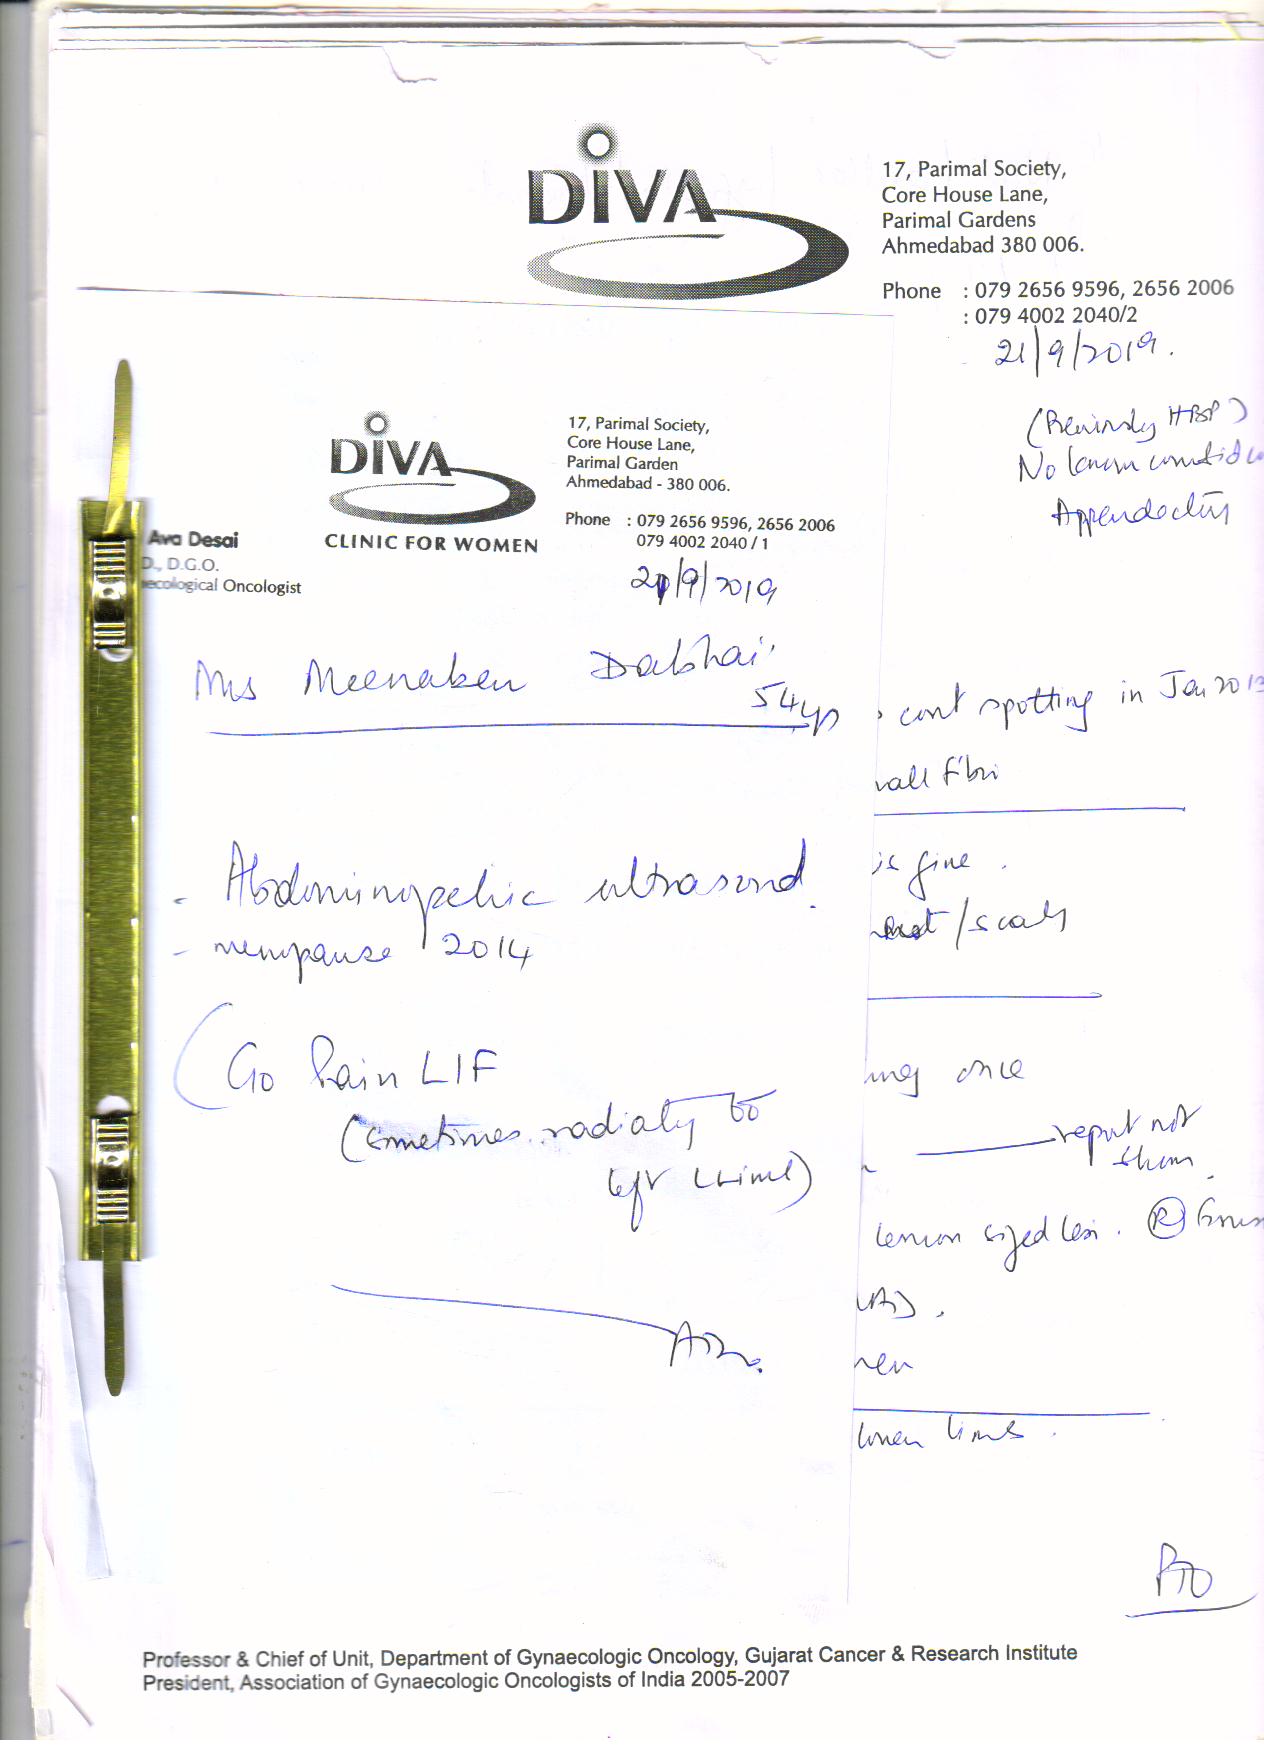 DIVA
17, Parimal Society,
Core House Lane,
Parimal Gardens
Ahmedabad 380 006.
Phone : 079 2656 9596, 2656 2006
: 079 4002 2040/2
21/9/2019.
(Previously HBP)
No known
Appendectomy
DIVA
CLINIC FOR WOMEN
17, Parimal Society,
Core House Lane,
Parimal Garden
Ahmedabad - 380 006.
Phone : 079 2656 9596, 2656 2006
079 4002 2040 / 1
Ava Desai
D., D.G.O.
aecological Oncologist
21/9/2019
Mrs Meenaben Dabhai
54yrs
- Abdominopelvic ultrasound.
- menopause 2014
(C/o Pain LIF
(sometimes radiating to
left limb)
cont spotting in Jan 2013
is fine.
/scars
once
report not
shown.
lemon sized (R)
PTO
Professor & Chief of Unit, Department of Gynaecologic Oncology, Gujarat Cancer & Research Institute
President, Association of Gynaecologic Oncologists of India 2005-2007